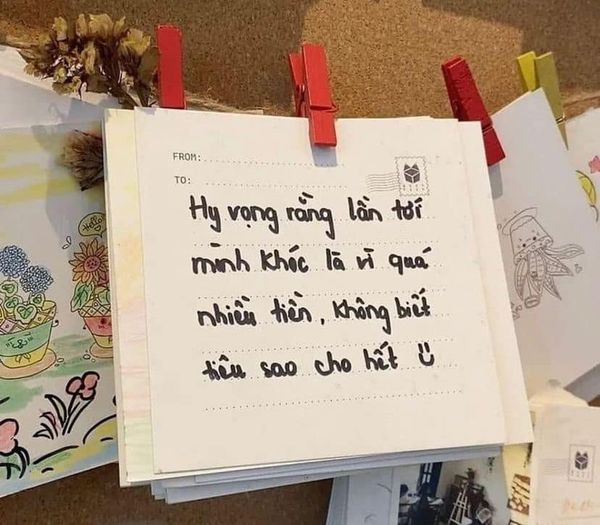 FROM:
TO:
Hy vọng rằng lần tới
mình khóc là vì quá
nhiều tiền, không biết
tiêu sao cho hết
Hello